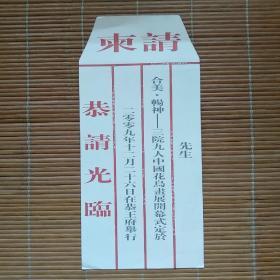 請柬
先生
合美·暢神——三院九人中國花鳥畫展開幕式定於
二零零九年十二月二十六日在恭王府舉行
恭請光臨